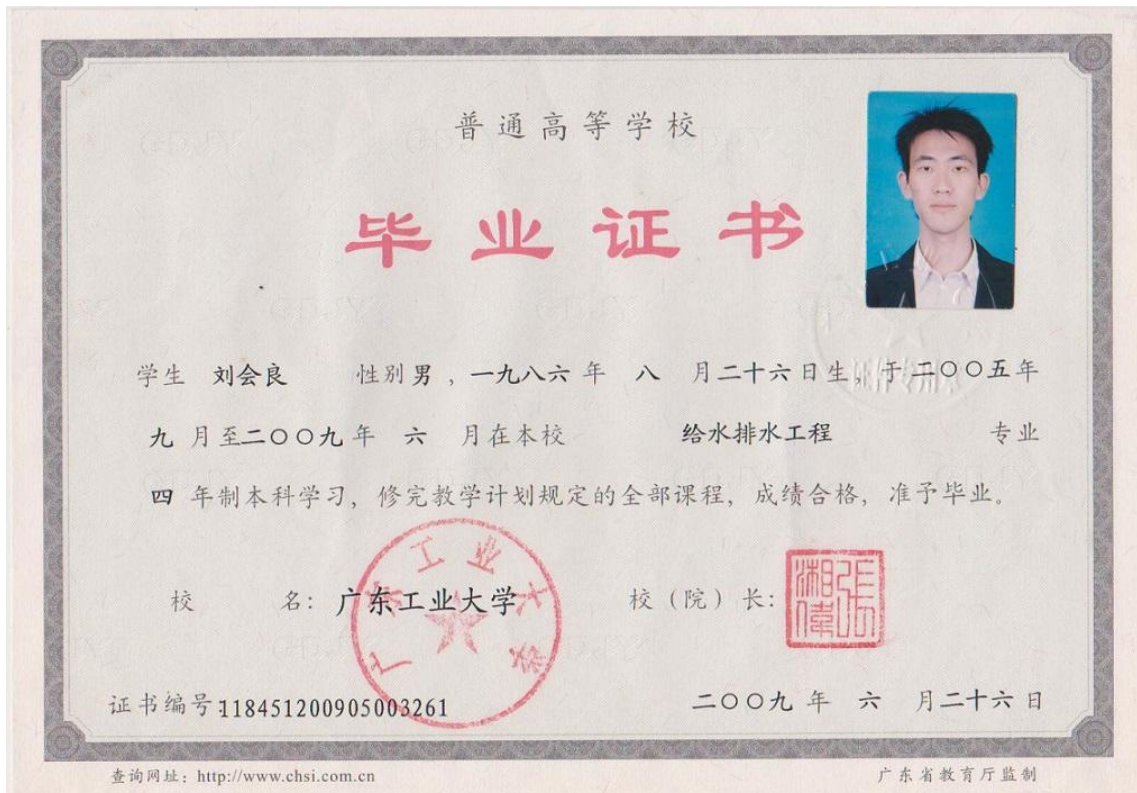 普通高等学校
毕业证书
学生 刘会良 性别 男 ，一九八六 年 八 月二十六日生，于二〇〇五年
九 月至二〇〇九年 六 月在本校 给水排水工程 专业
四 年制本科学习，修完教学计划规定的全部课程，成绩合格，准予毕业。
校 名：广东工业大学 校（院）长：
广东工业大学
张湘偉
证书编号:118451200905003261 二〇〇九 年 六 月二十六日
查询网址：http://www.chsi.com.cn 广东省教育厅监制